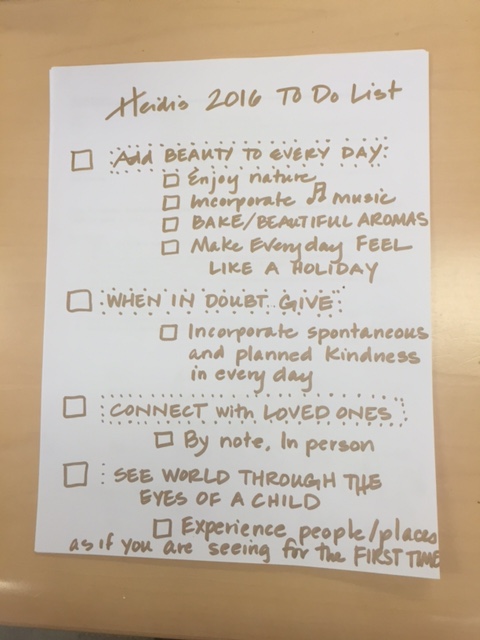 Heidi's 2016 To Do List
Add BEAUTY TO EVERY DAY:
Enjoy nature
Incorporate music
BAKE/BEAUTIFUL AROMAS
Make Everyday FEEL
LIKE A HOLIDAY
WHEN IN DOUBT GIVE:
Incorporate spontaneous
and planned Kindness
in every day
CONNECT with LOVED ONES
By note, In person
SEE WORLD THROUGH THE
EYES OF A CHILD
Experience people/places
as if you are seeing for the FIRST TIME